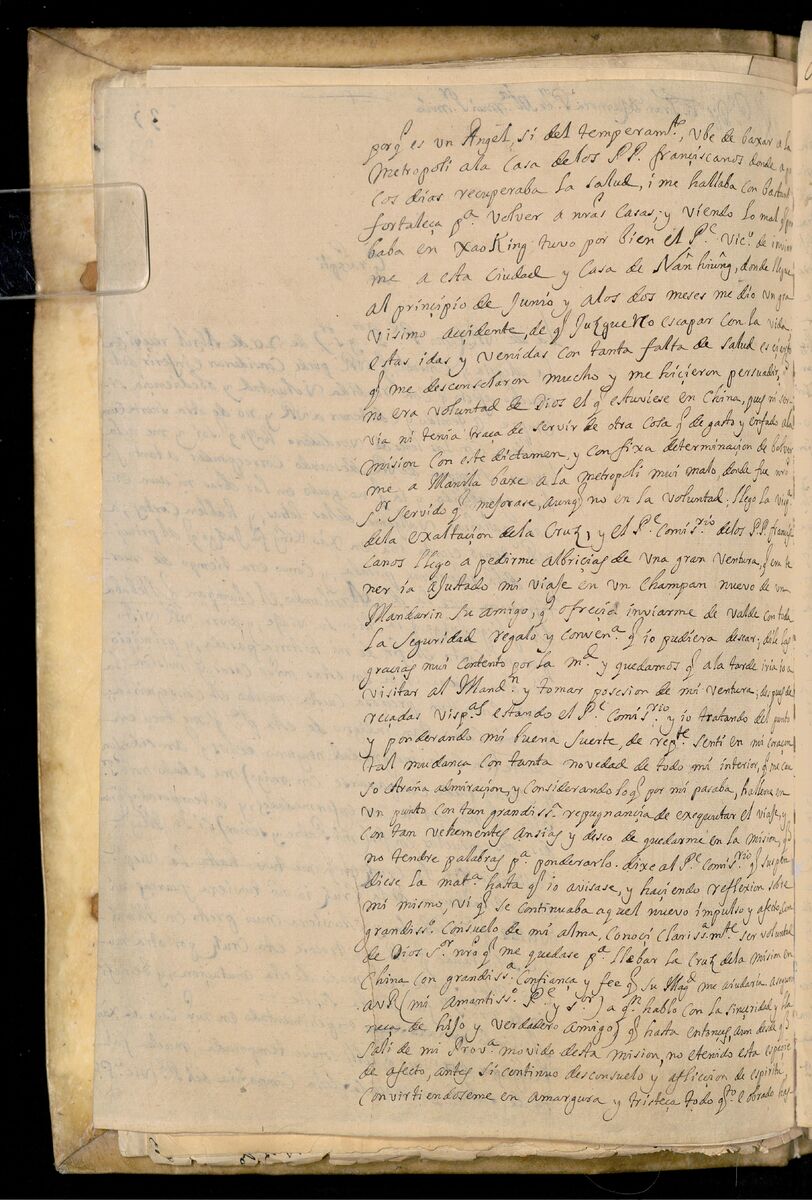 porq̃ es un Angel, sí del temperamto, ube de baxar a la
Metropoli ala Casa delos P.P. franciscanos donde a po
cos dias recuperaba la salud, i me hallaba con bastante
fortaleça pa. volver a nrãs Casas; y viendo lo mal q̃ pro
baba en Xao King tuvo por bien el Pe Vico. de inviar
me a esta Ciudad y Casa de Nân hiûng, donde llegue
al principio de Junio y alos dos meses me dio un gra
visimo acçidente, de q̃ Juzgue no escapar con la vida
estas idas y venidas con tanta falta de salud es cierto
q̃ me desconsolaron mucho y me hiçieron persuadir,
no era voluntad de Dios el q̃ estuviese en China, pues ni ser
via ni tenia traça de servir de otra cosa q̃ de gasto y enfado ala
mision con este dictamen, y con fixa determinaçion de bolver
me a Manila baxe a la metropoli mui malo, donde fue nrõ
sor servido q̃ mejorase, aunq̃ no en la voluntad. llego la vispa
dela exaltaçion dela Cruz, y el Pe Comisrio delos P.P. francis
canos llego a pedirme albriçias de una gran ventura, q̃ era te
ner ia ajustado mi viaje en un champan nuevo de un
Mandarin su amigo, q̃ ofreçia inviarme de valde con toda
la seguridad regalo y convena q̃ io pudiera desear; dile las
graçias mui contento por la md y quedamos q̃ ala tarde iria io a
visitar al Mandn y tomar posesion de mi ventura; despues de
reçadas vispas estando el Pe Comisrio y io tratando del punto
y ponderando mi buena suerte, de repte senti en mi coraçon
tal mudança con tanta novedad de todo mi interior, q̃ me cau
so etraña admiraçion, y considerando lo q̃ por mi pasaba, halleme en
un punto con tan grandissa repugnancia de exequutar el viaje, y
con tan vehementes ansias y deseo de quedarme en la mision, q̃
no tendre palabras pa. ponderarlo. dixe al Pe Comisrio q̃ suspen
diese la mata hasta q̃ io avisase, y haçiendo reflexion sobre
mi mismo, vi q̃ se continuaba aquel nuevo impulso y afecto, con
grandisso. Consuelo de mi alma, Conoci clarissamte ser voluntad
de Dios sor nrõ q̃ me quedase pa llebar la Cruz dela mision en
China con grandissa. Confiança y fee q̃ su Magd me aiudaria. aseguro
a VP (mi Amantisso. Pe y Sor) a qn hablo con la sinçeridad y lla
neça de hijo y verdadero amigo) q̃ hasta entonçes, aun desde q̃
sali de mi Prova movido desta mision, no e tenido esta espeçie
de afecto, antes si continuo desconsuelo y afliccion de espiritu,
Convirtiendoseme en amargura y tristeça todo qto e obrado has-